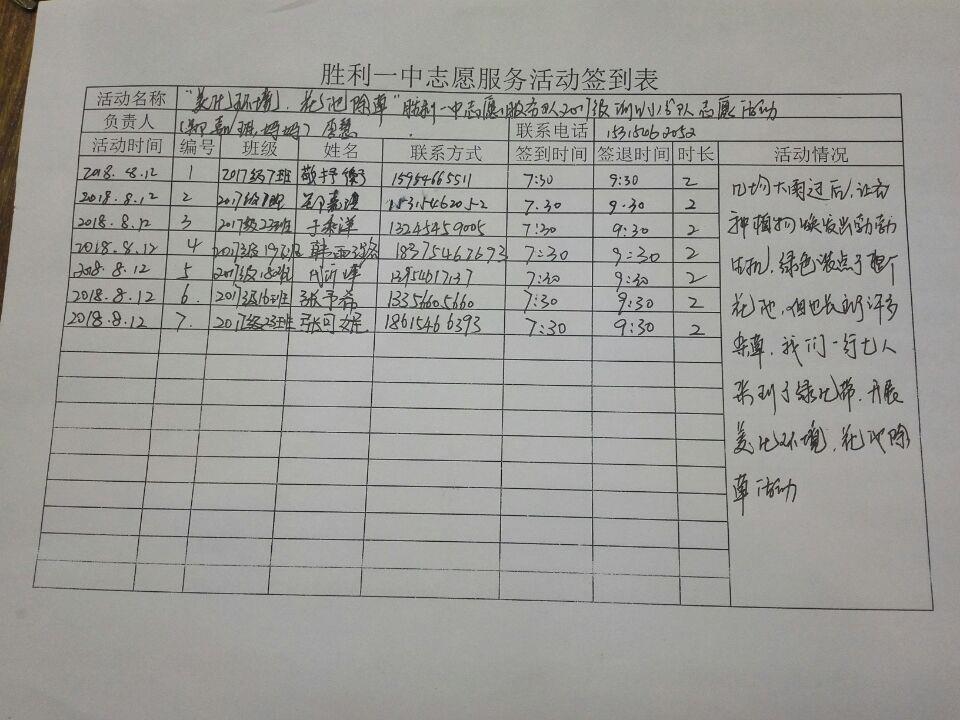 胜利一中志愿服务活动签到表
活动名称 "美化环境,花池除草"胜利一中志愿服务队2017级 志愿活动
负责人 联系电话 15315062052
活动时间 编号 班级 姓名 联系方式 签到时间 签退时间 时长 活动情况
2018.8.12 1 2017级7班 15954665511 7:30 9:30 2
2018.8.12 2 7:30 9:30 2
2018.8.12 3 2017级23班 13245459005 7:30 9:30 2
2018.8.12 4 2017级19班 韩雨 18375467673 7:30 9:30 2
2018.8.12 5 2017级18班 7:30 9:30 2
2018.8.12 6. 2017级16班 张予希 13356605660 7:30 9:30 2
2018.8.12 7. 2017级23班 张可妮 18615466393 7:30 9:30 2
几场大雨过后,让各
种植物焕发出勃勃
生机,绿色 点了整个
花池,但也长出了许多
杂草,我们一行七人
来到了绿化带,开展
美化环境,花池除
草活动